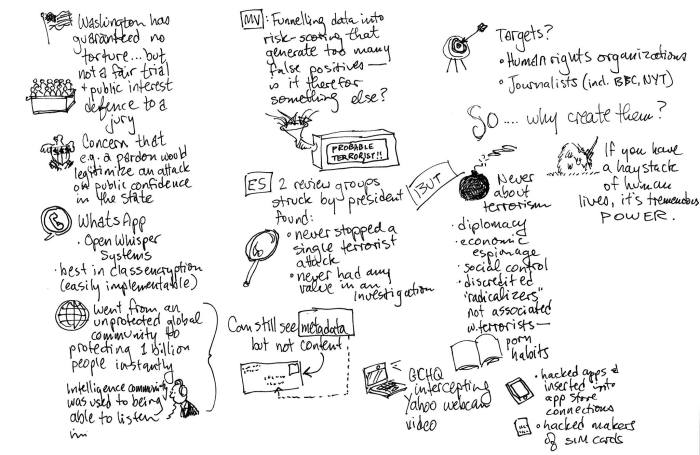 Washington has
guaranteed no
torture...but
not a fair trial
+ public interest
defence to a
jury
Concern that
e.g. a pardon would
legitimize an attack
on public confidence
in the state
WhatsApp
• Open Whisper
Systems
• best in class encryption
(easily implementable)
Went from an
unprotected global
community to
protecting 1 billion
people instantly
Intelligence community
was used to being
able to listen
in
MV : Funnelling data into
risk-scoring that
generate too many
false positives —
is it therefor
something else?
PROBABLE
TERRORIST!!
ES 2 review groups
struck by president
found:
• never stopped a
single terrorist
attack
• never had any
value in an
investigation
Can still see metadata
but not content
GCHQ
intercepting
Yahoo webcam
video
Targets?
• Human rights organizations
• Journalists (incl. BBC, NYT)
So.... why create them?
BUT
Never
about
terrorism
• diplomacy
• economic
espionage
• social control
• discredited
"radicalizers"
not associated
w. terrorists —
porn
habits
If you have
a haystack
of human
lives, it's tremendous
POWER.
• hacked apps &
inserted into
app store
connections
• hacked makers
of SIM cards